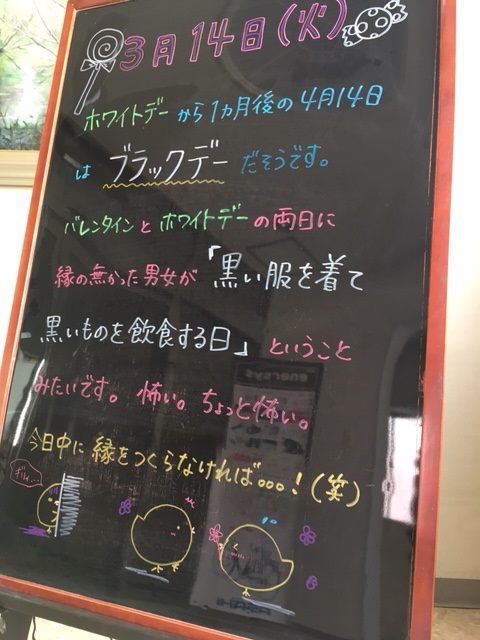 3月14日(火)
ホワイトデーから1ヵ月後の4月14日
は ブラックデー だそうです。
バレンタインとホワイトデーの両日に
縁の無かった男女が「黒い服を着て
黒いものを飲食する日」ということ
みたいです。怖い。ちょっと怖い。
今日中に縁をつくらなければ。。。!(笑)